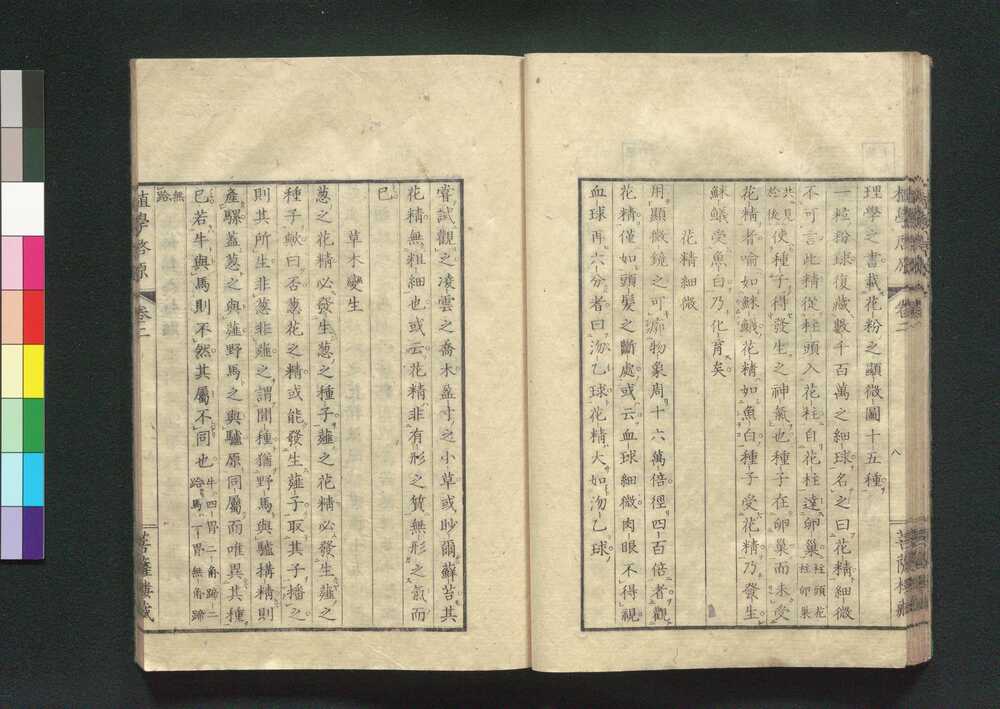 理學之書載花粉之顯微圖十五種
一粒粉球復藏數千百萬之細球名之曰花精細微
不可言此精從柱頭入花柱自花柱達卵巢柱頭花柱卵巢
共見於後使種子得發生之神氣也種子在卵巢而未受
花精者喻如鯀鱶花精如魚白種子受花精乃發生
受魚白乃化育矣
花精細微
用顯微鏡之可廓物象周十六萬倍徑四百倍者觀
花精僅如頭髮之斷處或云血球細微肉眼不得視
血球再六分者曰沕乙球花精大如沕乙球
嘗試觀之凌雲之喬木盈寸之小草或眇爾蘚苔其
花精無粗細也或云花精非有形之質無形之氣而
已
草木變生
葱之花精必發生葱之種子薤之花精必發生薤之
種子歟曰否葱花之精或能發生薤子取其子播之
則其所生非葱非薤之謂間種猶野馬與驢搆精則
產騾蓋葱之與薤野馬之與驢原同屬而唯異其種
已若牛與馬則不然其屬不同也牛四胃二角蹄二跲馬一胃無角蹄
無跲
植學啓原 卷二
八
菩薩樓藏